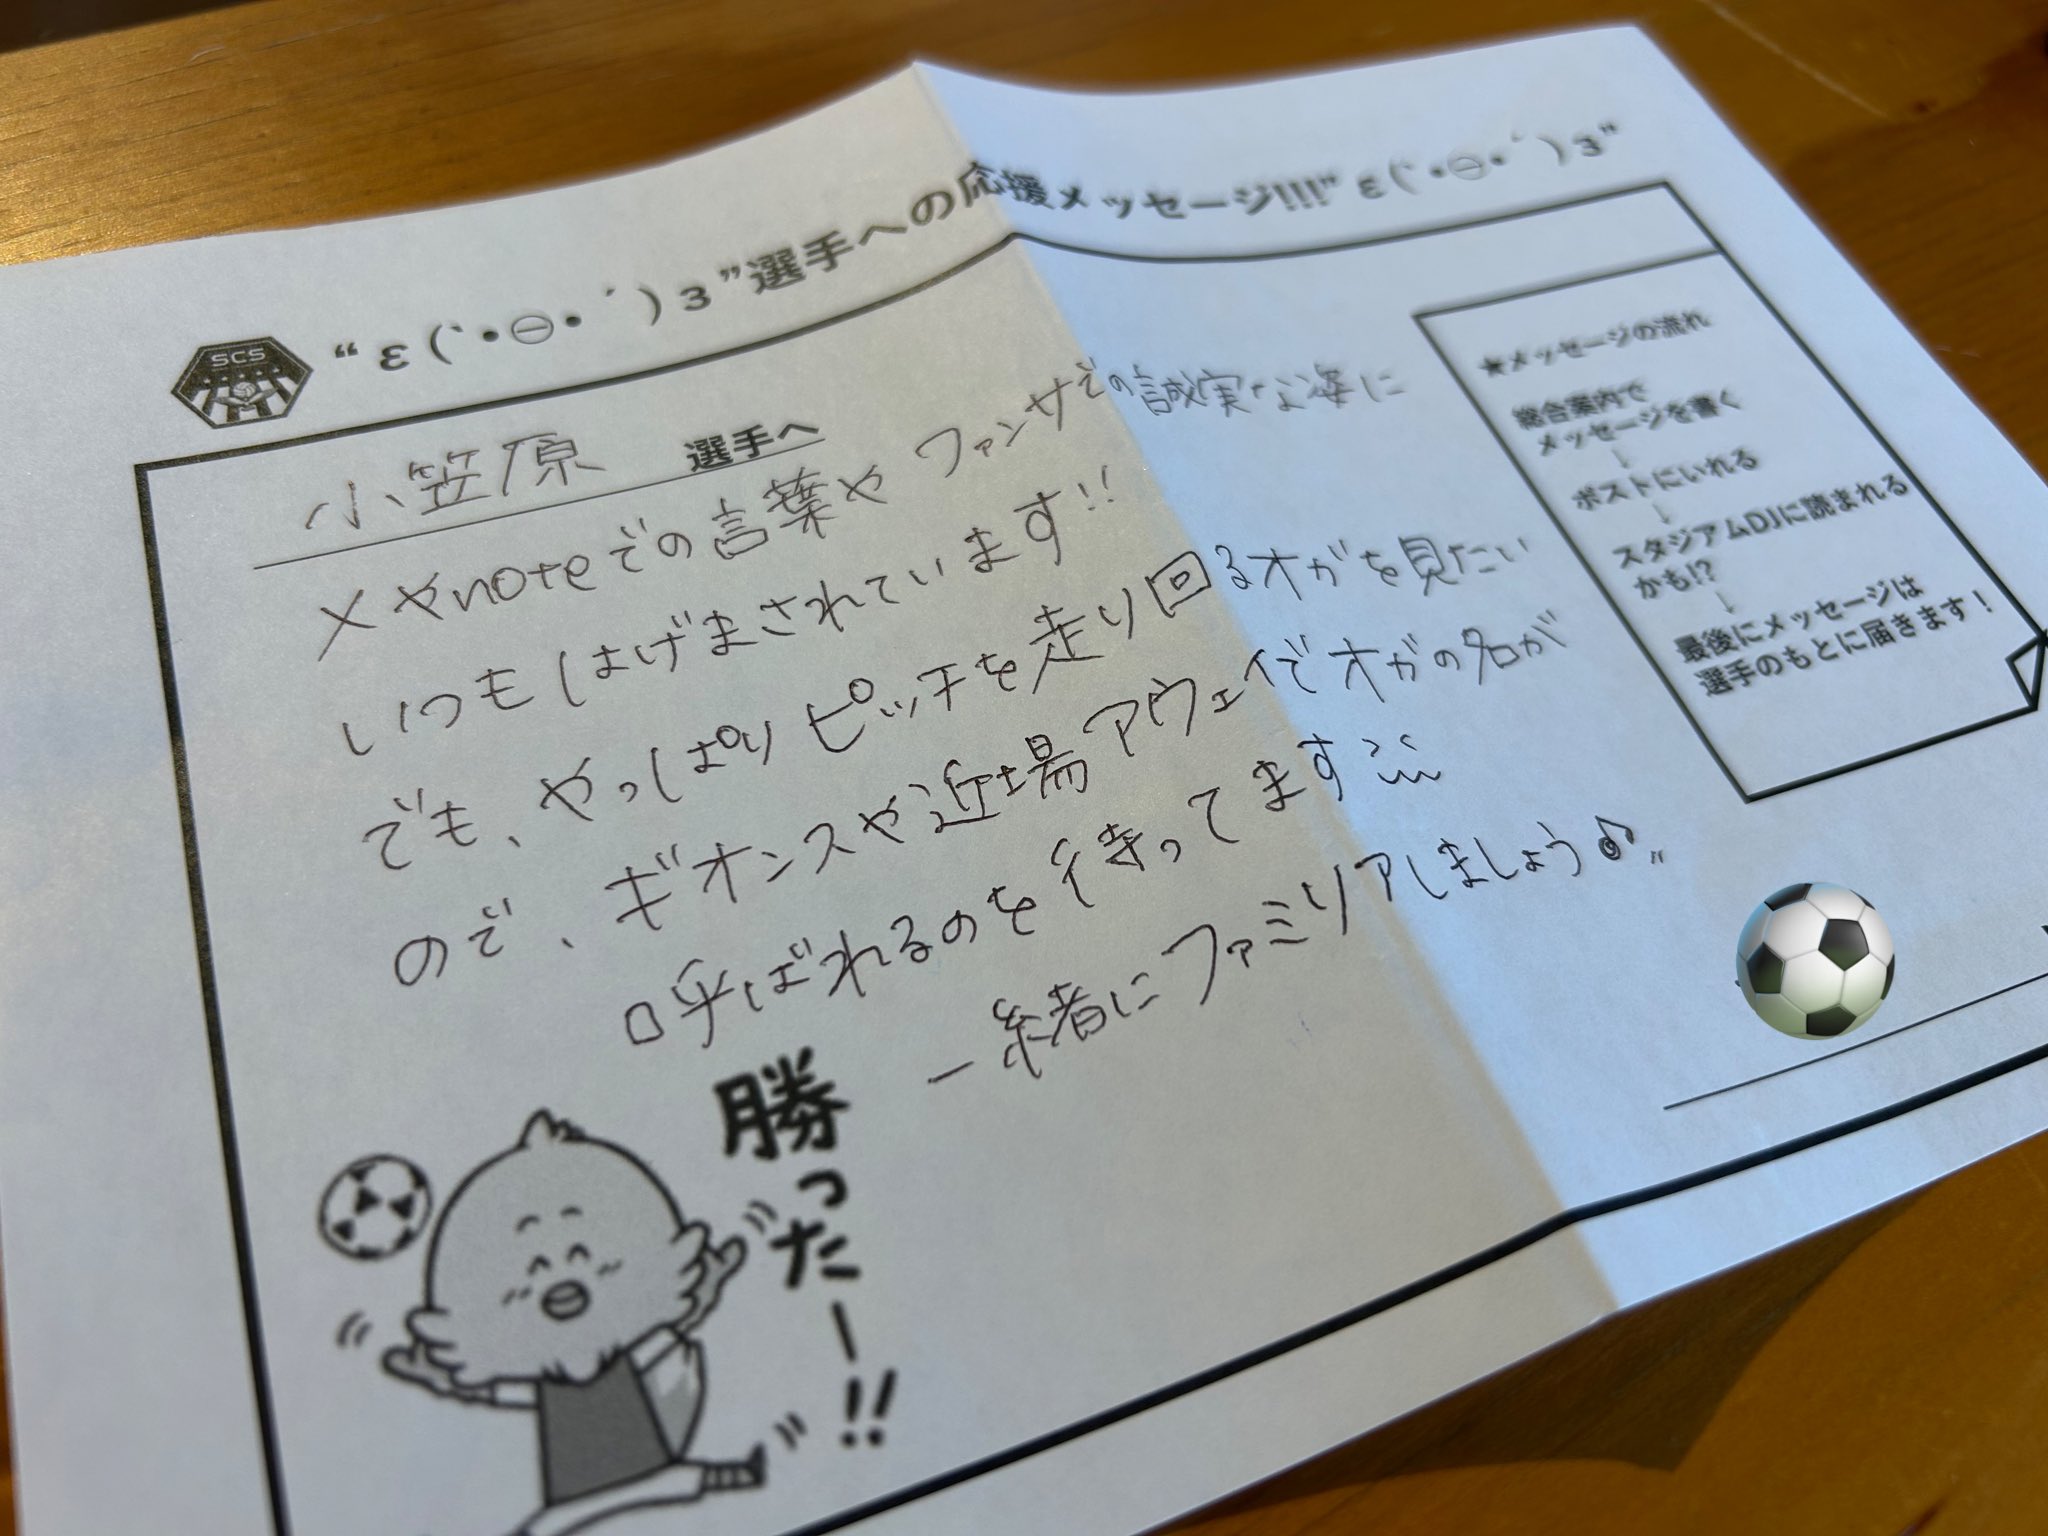 “ ε(｀・㊀・´)з ”選手への応援メッセージ!!!” ε(｀・㊀・´)з”
SCS
小笠原 選手へ
Xやnoteでの言葉やファンサでの誠実な姿に
いつもはげまされています!!
でも、やっぱりピッチを走り回るオガを見たい
ので、ギオンスや近場アウェイでオガの名が
呼ばれるのを待ってます
一緒にファミリアしましょう♪
勝ったー!!
★メッセージの流れ
総合案内で
メッセージを書く
↓
ポストにいれる
↓
スタジアムDJに読まれる
かも!?
↓
最後にメッセージは
選手のもとに届きます！